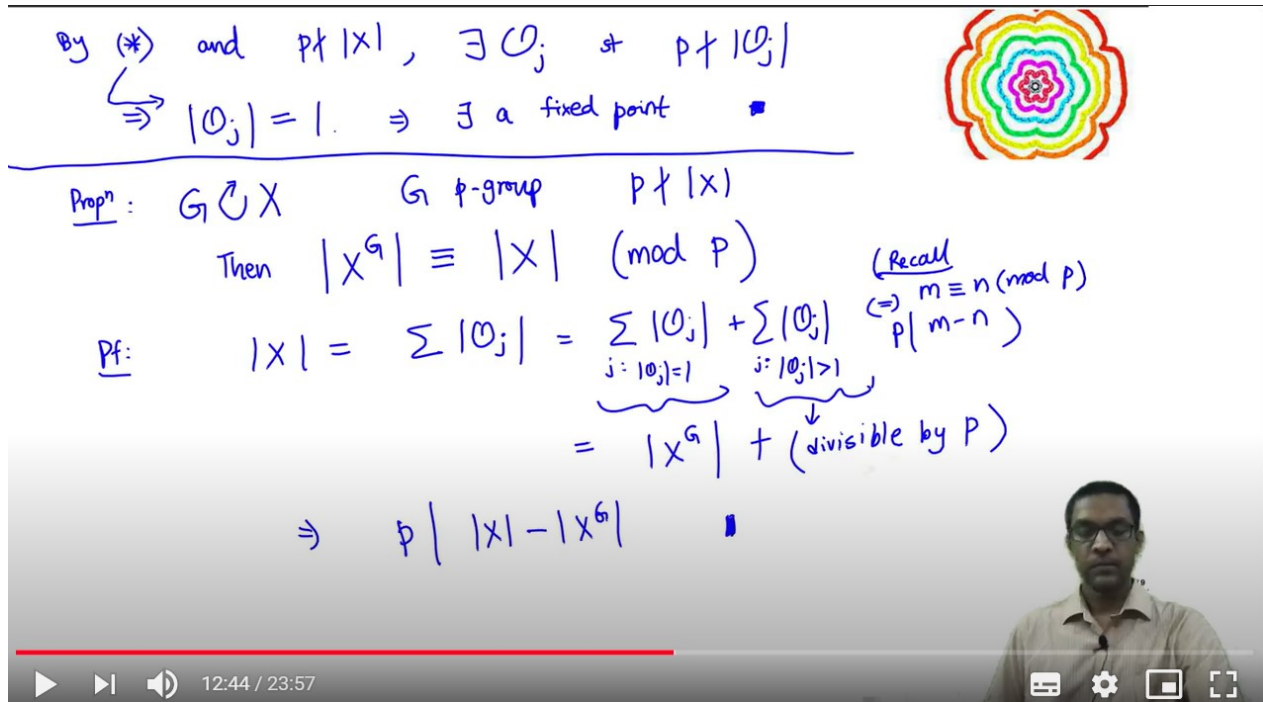 By (*) and p∤|X|, ∃ 𝒪ⱼ st p∤|𝒪ⱼ|
⇒ |𝒪ⱼ| = 1. ⇒ ∃ a fixed point ▪
Propⁿ: G ↻ X G p-group p∤|X|
Then |Xᴳ| ≡ |X| (mod p)
(Recall
m ≡ n (mod p)
(=) p| m-n )
Pf: |X| = Σ |𝒪ⱼ| = Σ |𝒪ⱼ| + Σ |𝒪ⱼ|
j: |𝒪ⱼ|=1 j: |𝒪ⱼ|>1
= |Xᴳ| + (divisible by p)
⇒ p | |X| - |Xᴳ| ▪
12:44 / 23:57